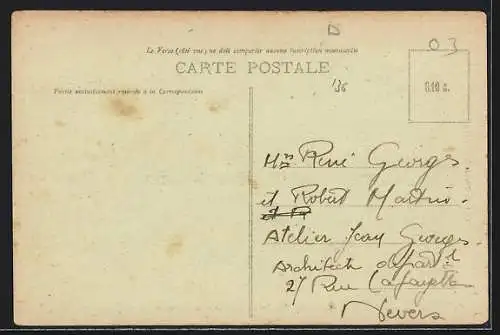 D
03
Le Verso (côté vue) ne doit comporter aucune inscription manuscrite
CARTE POSTALE
Partie exclusivement réservée à la Correspondance
136
Mrs René Georges.
et Robert Martin.
et R
Atelier Jean Georges.
Architecte départl
27 Rue Lafayette
Nevers